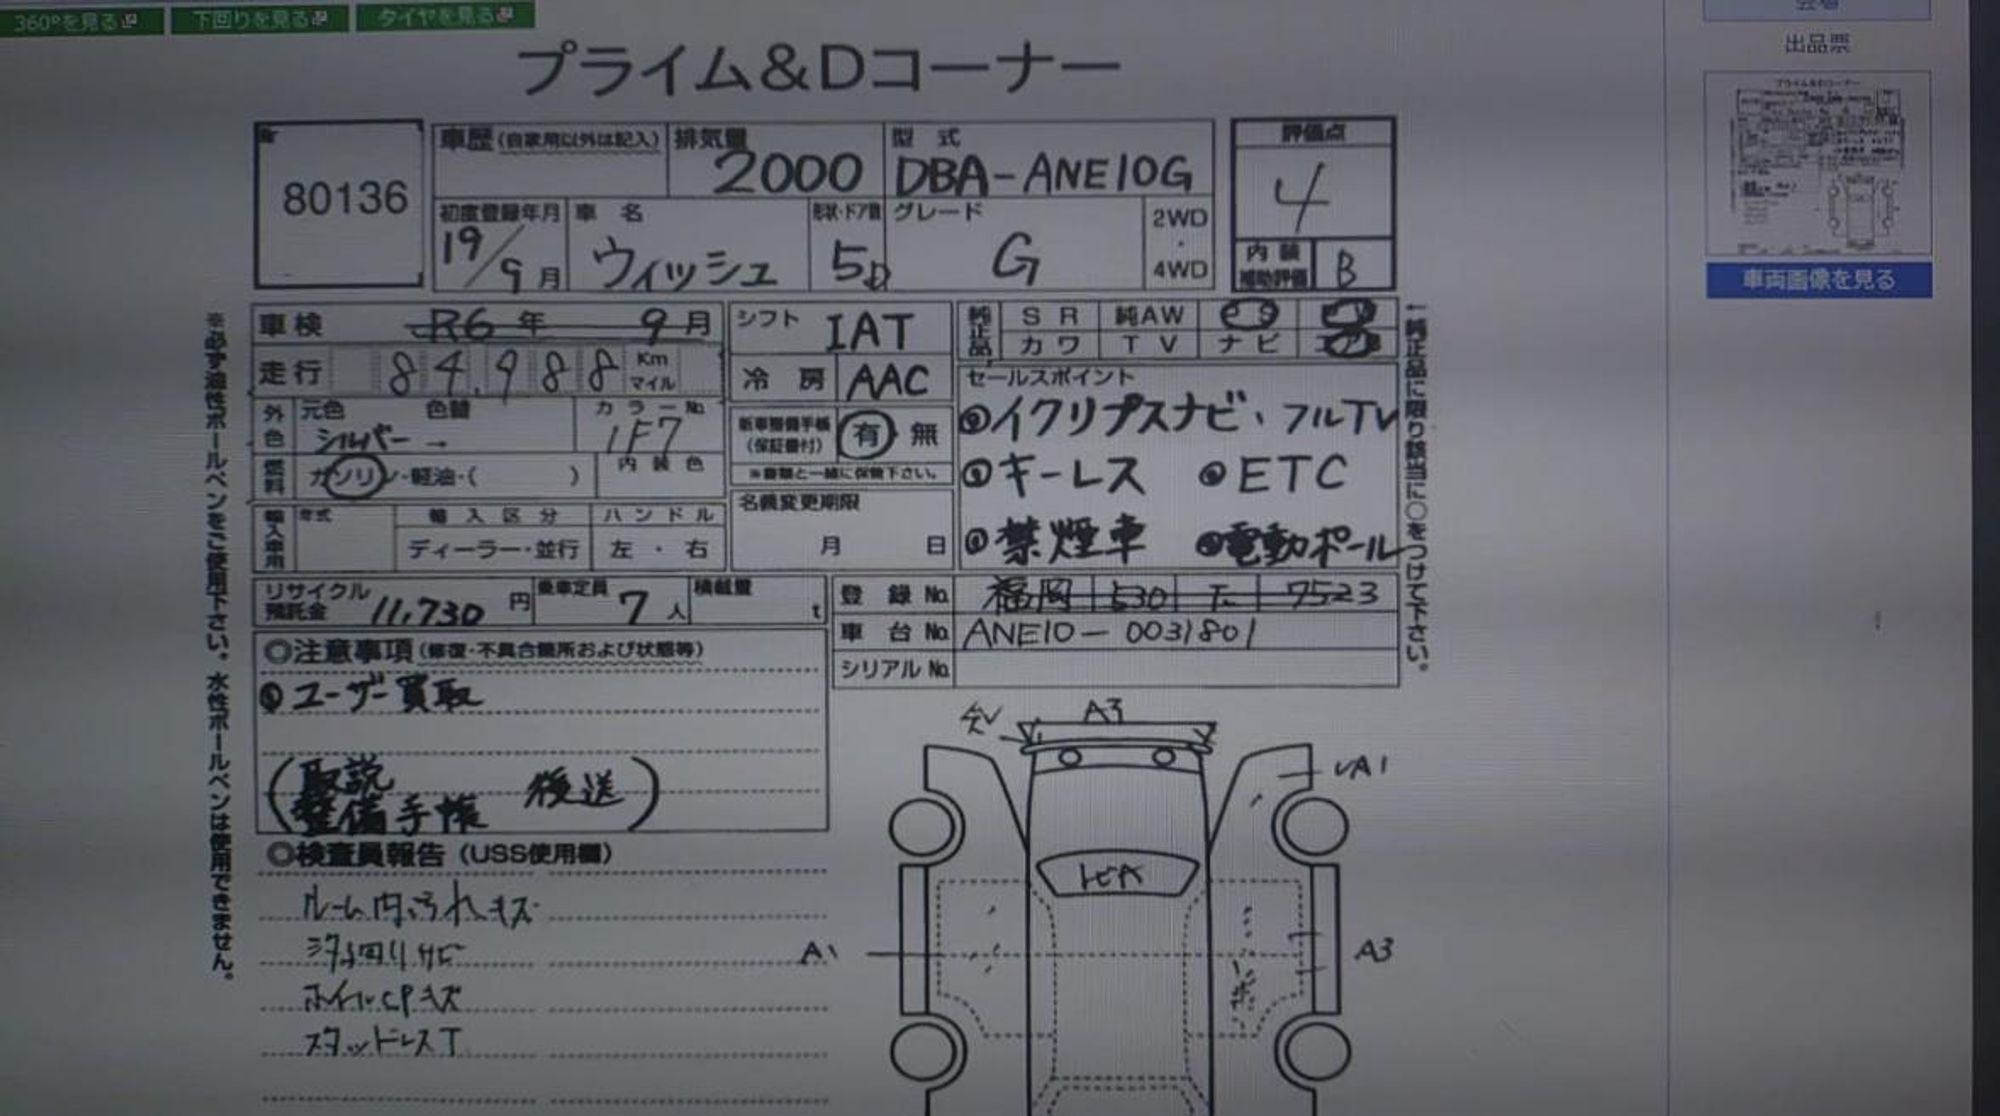 360°を見る
下回りを見る
タイヤを見る
会場
出品票
車両画像を見る
プライム&Dコーナー
80136
車歴(自家用以外は記入) 排気量 型式 評価点
2000 DBA-ANE10G 4
初度登録年月 車名 形状・ドア数 グレード 2WD・4WD 内装補助評価
19/9月 ウィッシュ 5D G B
車検 R6年 9月 シフト IAT 純正品 SR 純AW
カワ TV ナビ
走行 84,988 Km マイル 冷房 AAC セールスポイント
外色 元色 色替 カラーNo. 新車整備手帳(保証書付) 有 無
シルバー→ 1F7
①イクリプスナビ・フルTV
燃料 ガソリン・軽油・( ) 内装色 ※書類と一緒に保管下さい。
キーレス ETC
輸入車用 年式 輸入区分 ハンドル 名義変更期限
ディーラー・並行 左・右 月 日
禁煙車 電動ポール
リサイクル預託金 11,730円 乗車定員 7人 積載量 t
登録No. 福岡 530 7523
車台No. ANE10-0031801
シリアルNo.
◎注意事項(修復・不具合箇所および状態等)
①ユーザー買取
(取説 整備手帳 後送)
◎検査員報告(USS使用欄)
ルーム内汚れキズ
下回りサビ
ホイルCPキズ
スタッドレスT
A3
A1
A1
A3
※必ず油性ボールペンをご使用下さい。水性ボールペンは使用できません。
←純正品に限り該当に○をつけて下さい。